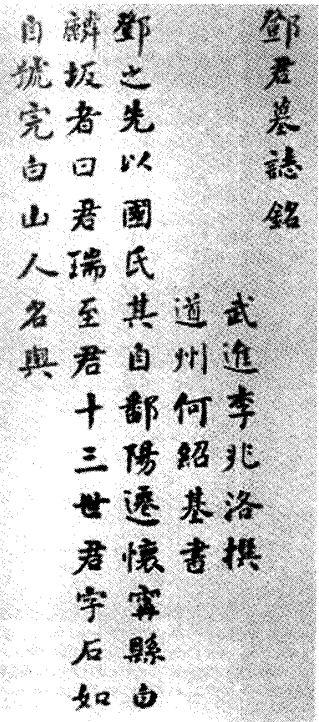 鄧君墓誌銘
武進李兆洛撰
道州何紹基書
鄧之先以國氏其自鄱陽遷懷寧縣白
麟坂者曰君瑞至君十三世君字石如
自號完白山人名與